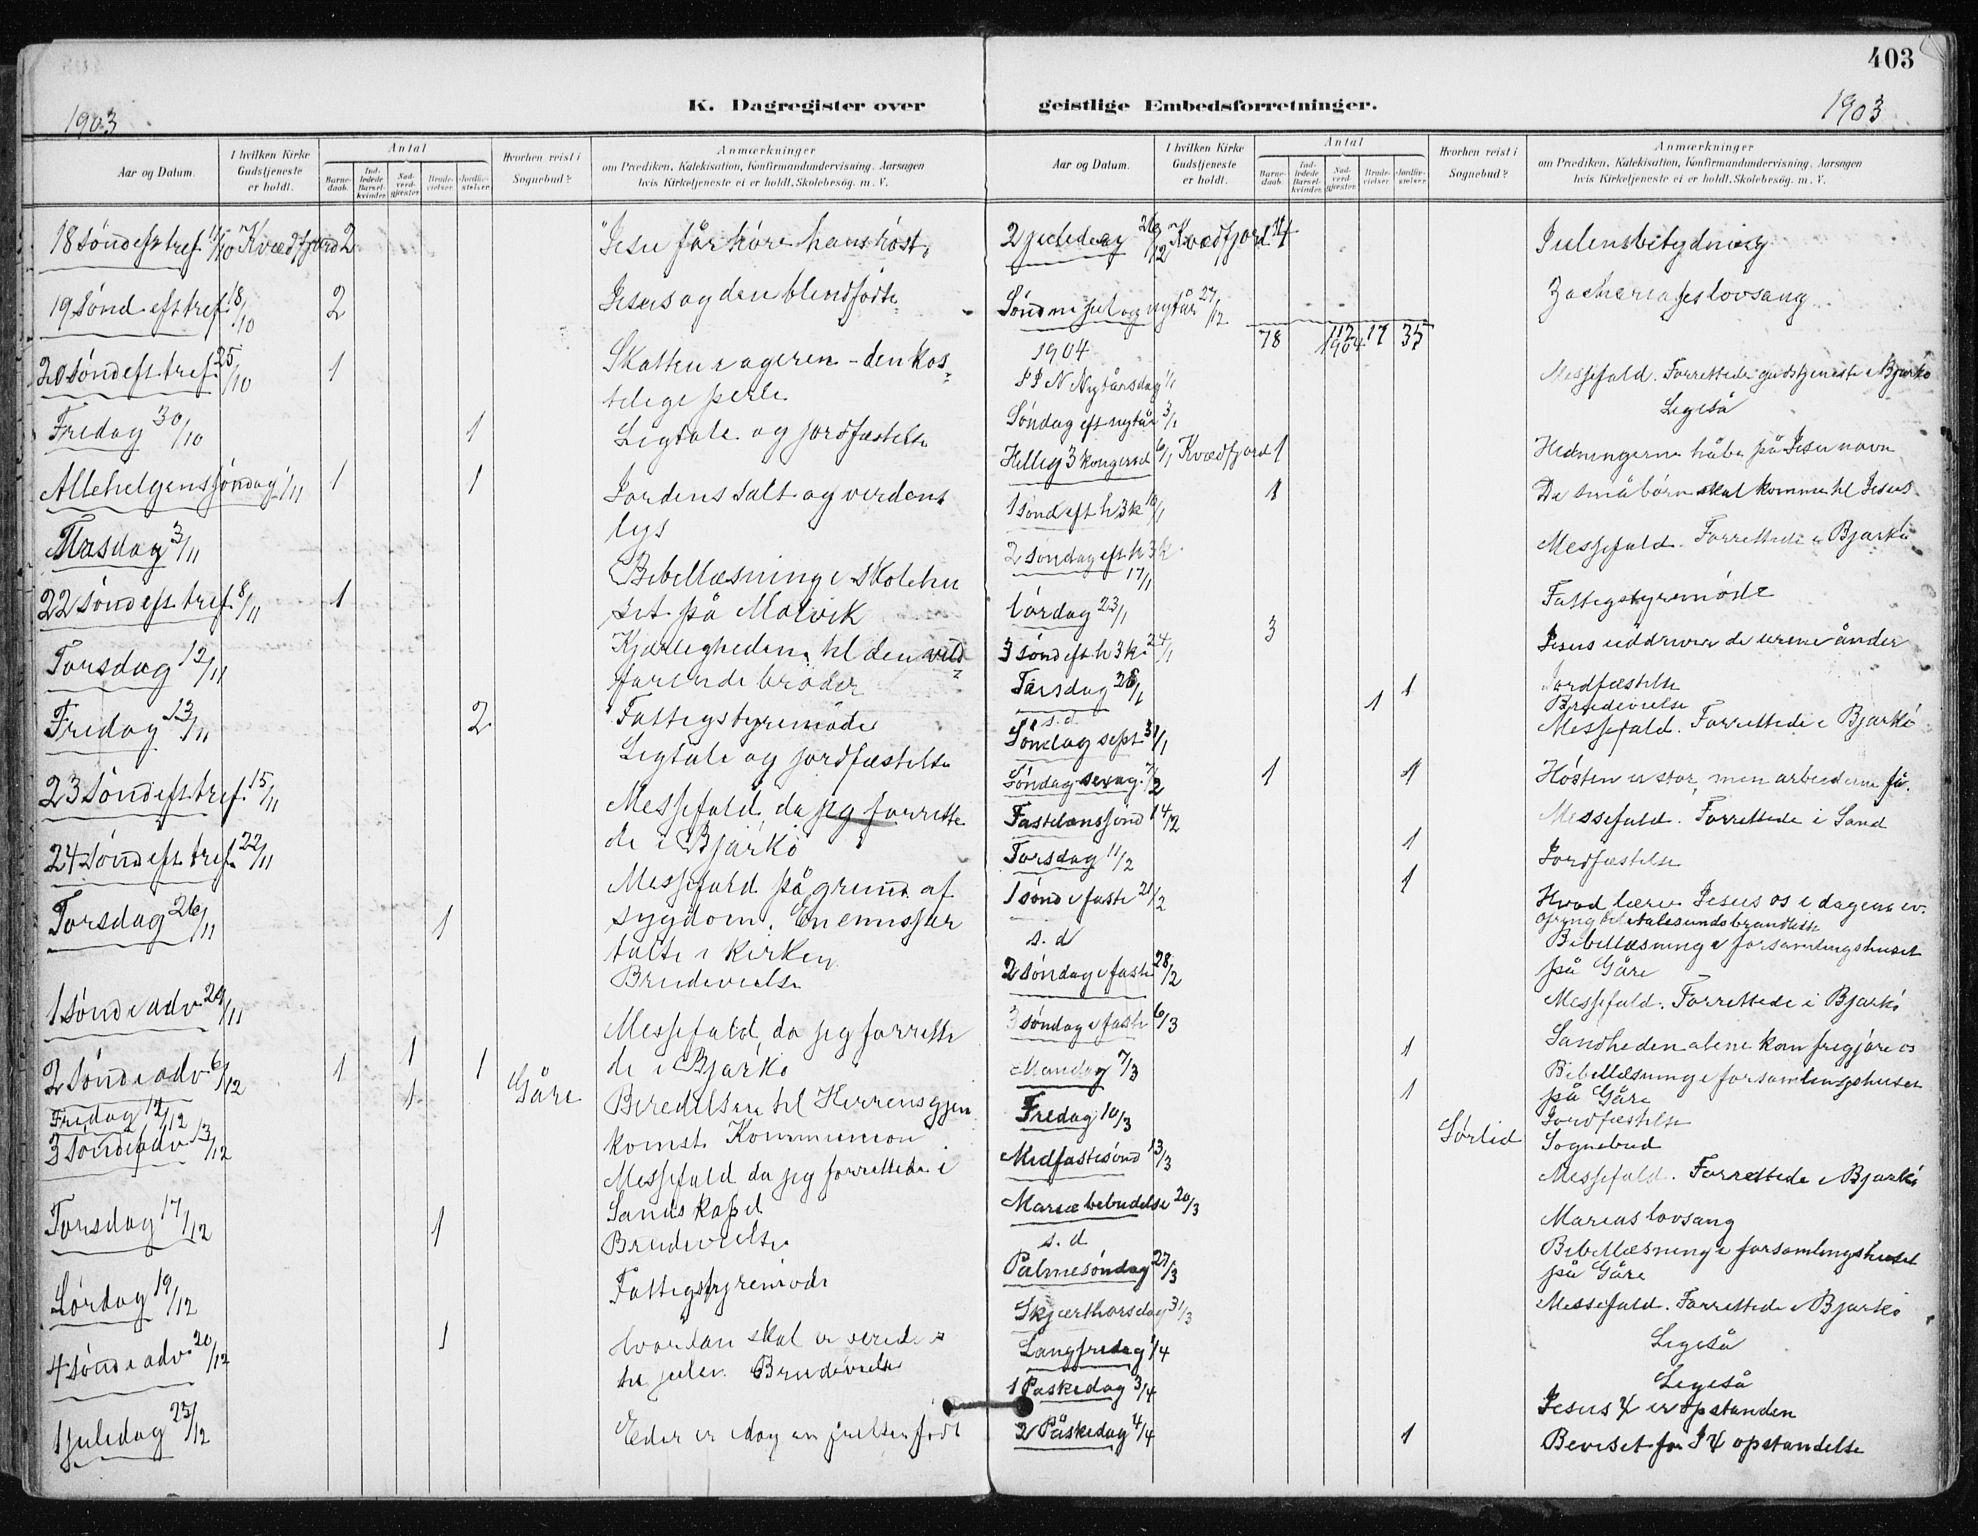 403
K. Dagregister over geistlige Embedsforretninger.
1903
1903
Aar og Datum.
I hvilken Kirke Gudstjeneste er holdt.
Antal
Barnedaab.
Indledede Barselkvinder.
Nadverdgjester.
Brudevielser.
Jordfæstelser.
Hvorhen reist i Sognebud?
Anmærkninger
om Prædiken, Katekisation, Konfirmandundervisning, Aarsagen hvis Kirketjeneste ei er holdt, Skolebesøg. m. V.
18 Søndefttref. 11/10 Kvædfjord 2 "Jesu får høre hans røst.
19 Sønd eft tref. 18/10 2 Jesus og den blindfødte
20 Søndeft tref. 25/10 1 Skatten i ageren - den kos-
telige perle
Fredag 30/10 1 Ligtale og jordfæstelse
Allehelgenssøndag 1/11 1 1 Jordens salt og verdens
lys
Tirsdag 3/11 Bibellæsning i skolehu
set på Molvik
22 Søndeft tref. 8/11 1 Kjærligheden til den vild-
farende broder
Torsdag 12/11 Fattigstyremöde
Fredag 13/11 2 Ligtale og jordfæstelse
23 Søndeft tref. 15/11 Messefald, da jeg forrette
de i Bjarkö
24 Søndeft tref. 22/11 Messefald på grund af
sygdom. Enemisjær
talte i kirken
Torsdag 26/11 1 Brudevielse
1 Sønd i adv. 29/11 Messefald da jeg forrette
de i Bjarkö
2 Sønd i adv. 6/12 1 1 1 Beredelsen til Herrens gjen
komst. Kommunion
Fredag 12/12 1 Gåre
3 Sønd i adv. 13/12 Messefald da jeg forrettede i
Sands kapel
Torsdag 17/12 1 Brudevielse
Lørdag 19/12 Fattigstyremöde
4 Sønd i adv. 20/12 1 Hvordan skal vi berede os
til julen. Brudevielse
1 juledag 25/12 Eder er idag en frelser født
Aar og Datum.
I hvilken Kirke Gudstjeneste er holdt.
Antal
Barnedaab.
Indledede Barselkvinder.
Nadverdgjester.
Brudevielser.
Jordfæstelser.
Hvorhen reist i Sognebud?
Anmærkninger
om Prædiken, Katekisation, Konfirmandundervisning, Aarsagen hvis Kirketjeneste ei er holdt, Skolebesøg. m. V.
2 juledag 26/12 Kvædfjord 4 Julens betydning
Sønd m jul og nytår 27/12 Zacharias lovsang
78 112 17 35
1904 1904
Nytårsdag 1/1 Messefald. Forrettede gudstjeneste i Bjarkö
Søndag eft nytår 3/1 Ligeså
Hellig 3 kongersd 6/1 Kvædfjord 1 Hedningerne håbe på Jesu navn
1 Sønd eft h 3 k 10/1 1 De små börn skal komme til Jesus
2 Søndag eft h 3 k 17/1 Messefald. Forrettede i Bjarkö
Lørdag 23/1 Fattigstyremöde
3 Sønd eft h 3 k. 24/1 3 Jesus uddriver de urene ånder
Tirsdag 26/1 1 Jordfæstelse
s. d. 1 Brudevielse
Søndag sept 31/1 Messefald. Forrettede i Bjarkö
Søndag sexag. 7/2 1 1 Høsten er stor, men arbeiderne få.
Fastelavnssønd 14/2 Messefald. Forrettede i Sand
Torsdag 11/2 1 Jordfæstelse
1 sønd i faste 21/2 1 Hvad lærer Jesus os i dagens ev.
Aalesundsbrandlidte
s. d Bibellæsning i forsamlingshuset
på Gåre
2 Søndag i faste 28/2 Messefald. Forrettede i Bjarkö
3 Søndag i faste 6/3 1 Sandheden alene kan frigjøre os
Mandag 7/3 Bibellæsning i forsamlingshuset
på Gåre
Fredag 10/3 1 Jordfæstelse
Sørlid Sognebud
Midfastesønd 13/3 Messefald. Forrettede i Bjarkö
Mariæ bebudelse 20/3 Marias lovsang
s. d Bibellæsning i forsamlingshuset
på Gåre
Palmesøndag 27/3 Messefald. Forrettede i Bjarkö
Skjærthorsdag 31/3 Ligeså
Langfredag 1/4 Ligeså
1 Påskedag 3/4 Jesus X er opstanden
2 Påskedag 4/4 1 Beviset for J X opstandelse